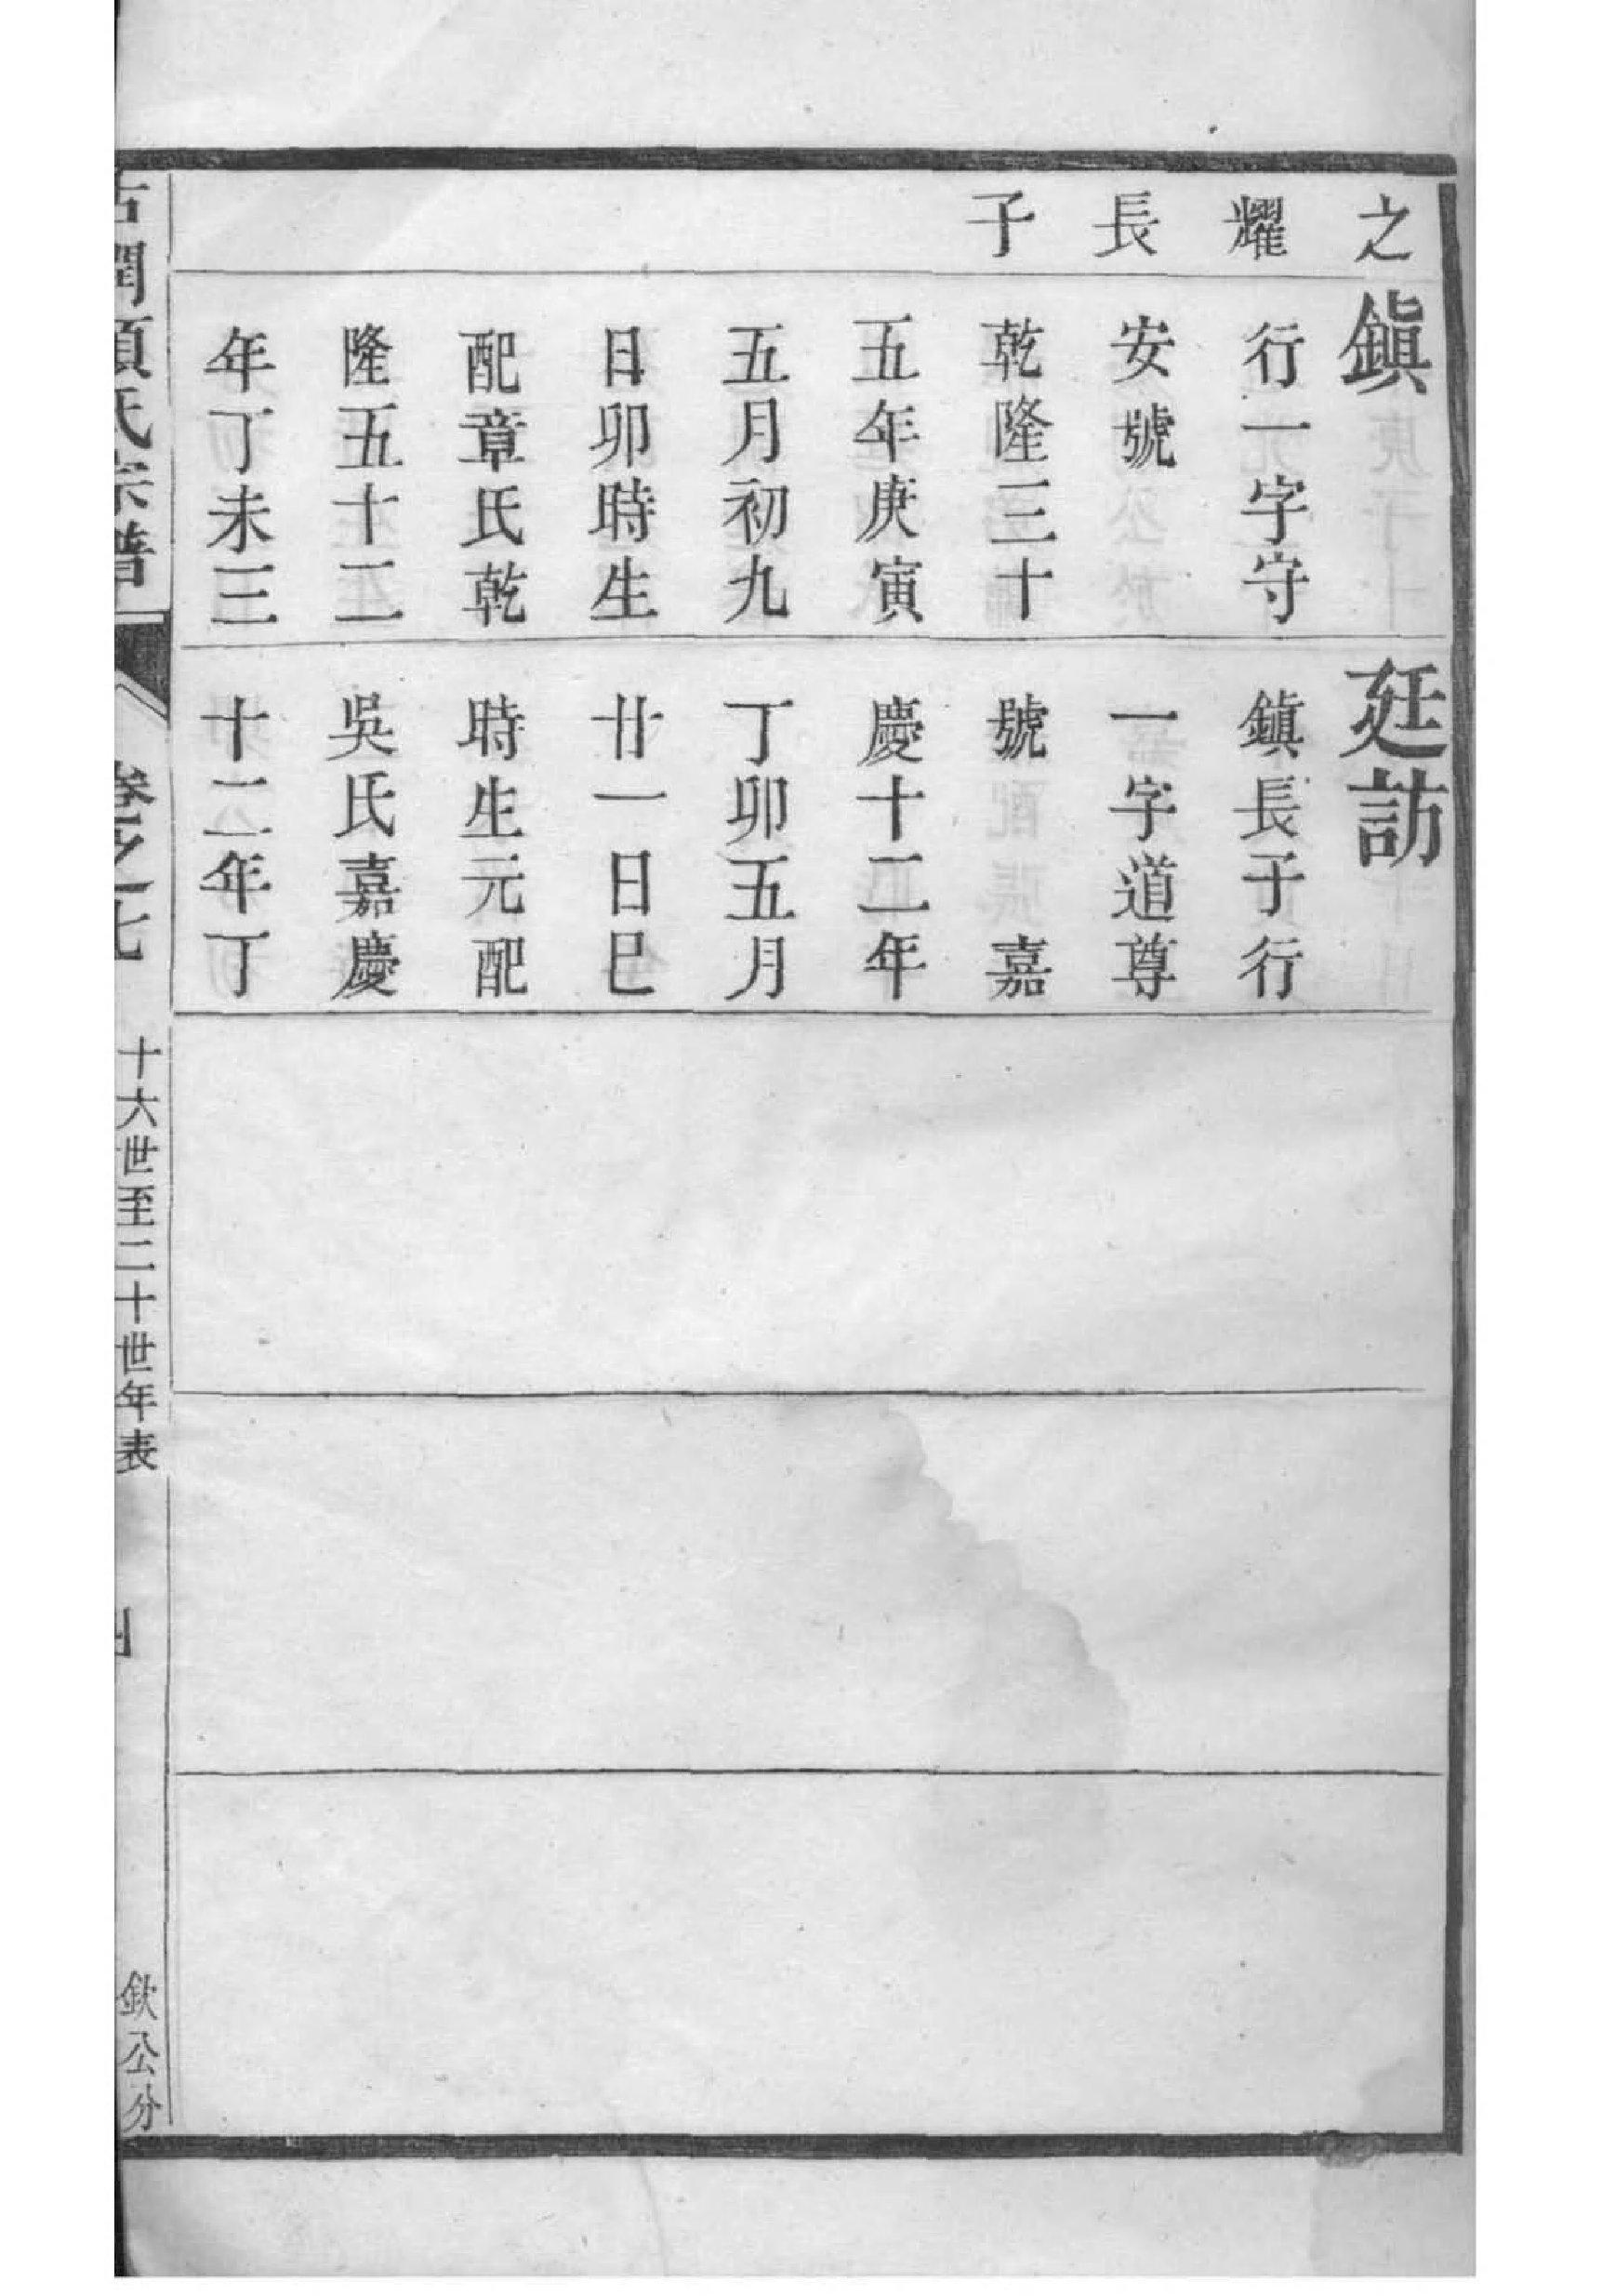 之耀長子
鎮
行一字守
安號
乾隆三十
五年庚寅
五月初九
日卯時生
配章氏乾
隆五十二
年丁未三
廷訪
鎮長子行
一字道尊
號　嘉
慶十二年
丁卯五月
廿一日巳
時生元配
吳氏嘉慶
十二年丁
潤項氏宗譜
卷之七
十六世至二十世年表
欽公分